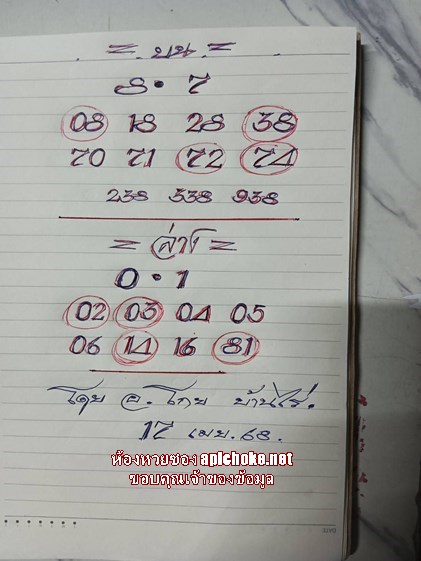 = บน =
8 • 7
08 18 28 38
70 71 72 74
238 538 938
= ล่าง =
0 • 1
02 03 04 05
06 14 16 81
โดย อ. โกย บ้านไร่.
17 เมย. 68.
ห้องหวยซอง apichoke.net
ขอบคุณเจ้าของข้อมูล